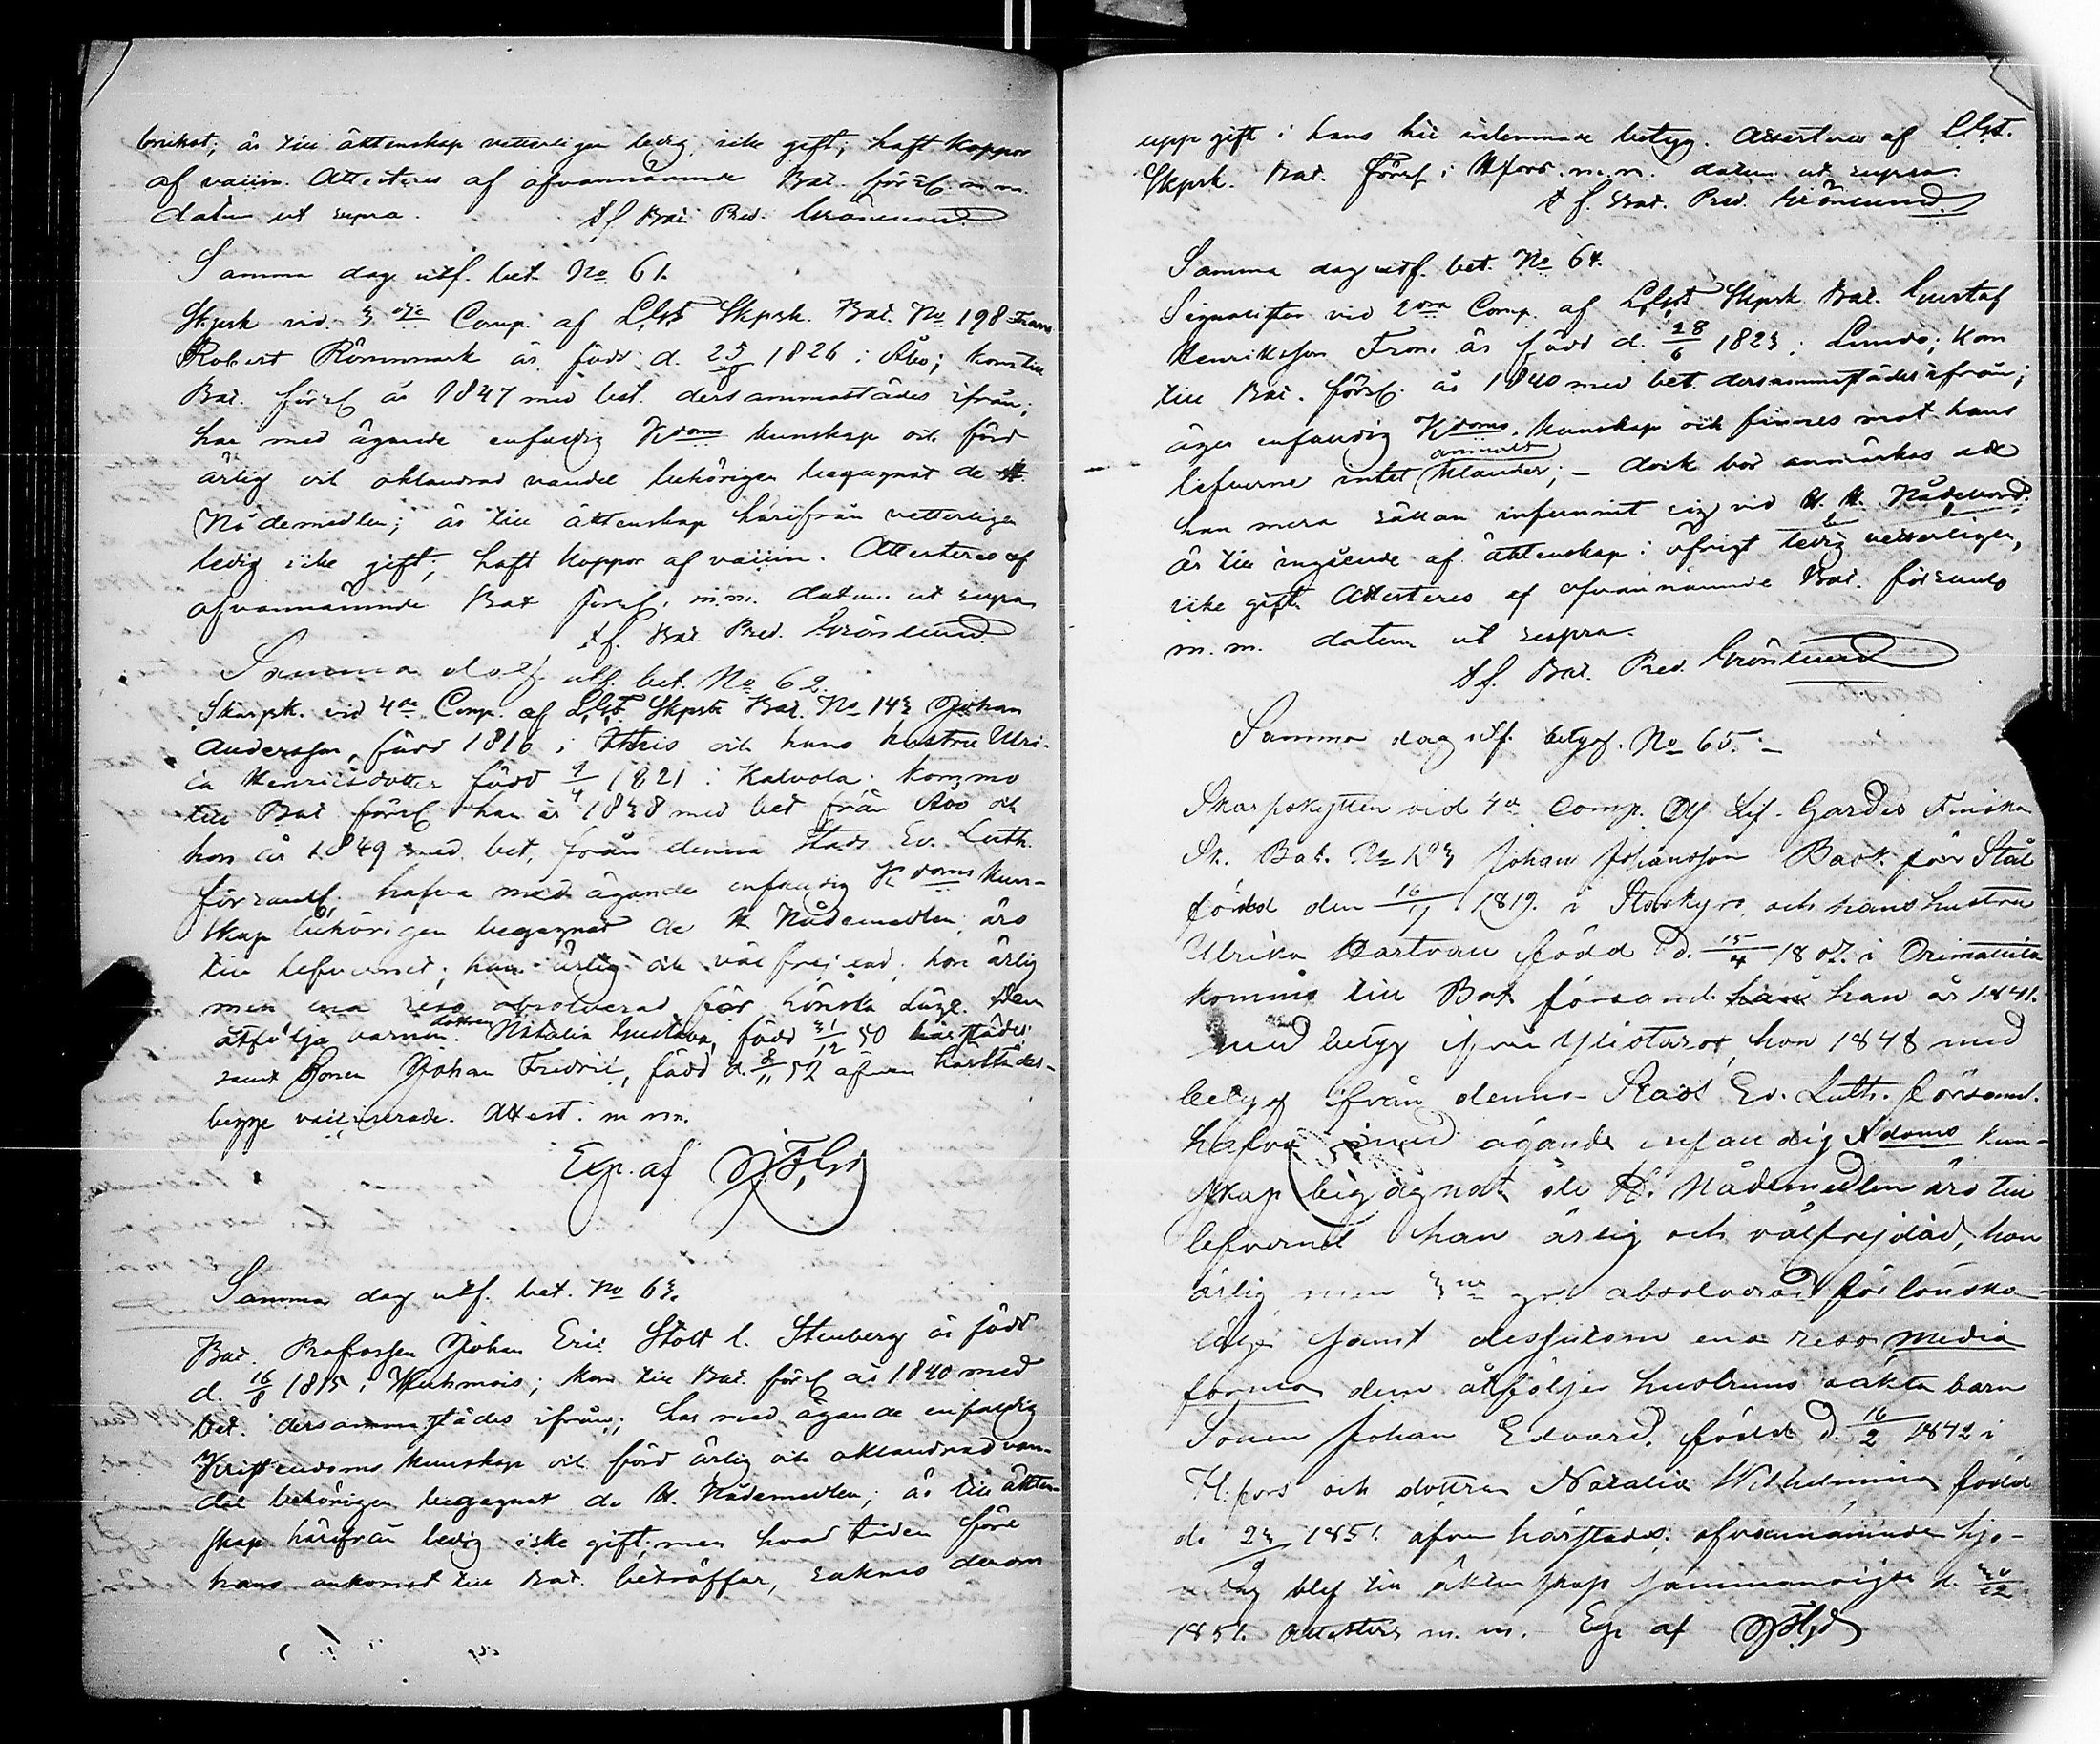 brukat; är till äktenskap vetterligen ledig icke gift; haft koppor
af vaccin. Attesteras af ofvannämnde Bat. förs. m.m.
datum ut supra. Bat. Pred. Grönlund
Samma dag utf. bet. No 61.
Skpsk vid 3dje Comp. af Skpsk. Bat. No 198 Frans
Robert Rönnmark är född d. 25/8 1826 i Åbo; kom till
Bat. förs. år 1847 med bet. dersammastädes ifrån;
har med ägande enfaldig Kdoms kunskap och förd
ärlig och oklandrad vandel behörigen begagnat de H.
Nådemedlen; är till äktenskap härifrån vetterligen
ledig icke gift; haft koppor af vaccin. Attesteras af
ofvannämnde Bat förs. m.m. datum ut supra
Bat. Pred. Grönlund
Samma utf. bet. No 62.
Skarpsk. vid 4de Comp. af Skpsk Bat. No 143 Johan
Andersson, född 1816 i och hans hustru Ulri-
ca Henricsdotter född 9/4 1821 i Kalvola. kommo
till Bat förs. han år 1838 med bet från Åbo och
hon år 1849 med bet, från denna Stads Ev. Luth.
församl. hafva med ägande enfaldig Kdoms kun-
skap behörigen begagnat de H Nådemedlen; äro
till lefvernet; han ärlig och väl frejdad; hon ärlig
men ena reso absolverad för lönska läge. Dem
åtfölja barnen dottren Natalia Gustava, född 31/12 50 härstädes
samt Sonen Johan Fredric, född d. 8/11 52 äfven härstädes-
begge vaccinerade. Attest. m m.
Exp. af
Samma dag utf. bet. No 63.
Bat. Profossen Johan Eric Stolt l. Stenberg är född
d. 16/8 1815 i Kuhmois; kom till Bat. förs. år 1840 med
bet. dersammastädes ifrån; har med ägande enfaldig
Kristendoms kunskap och förd ärlig och oklandrad van-
del behörigen begagnat de H. Nådemedlen; är till äkten-
skap härifrån ledig icke gift; men hvad tiden före
hans ankomst till Bat. beträffar, saknas derom
uppgift i hans här inlemnade betyg. Attesteras af
Skpsk. Bat. förs. i Hfors. m.m. datum ut supra
Bat. Pred. Grönlund.
Samma dag utf. bet. No 64.
Signalisten vid 2dra Comp. af Skpsk Bat. Gustaf
Henriksson Fron. är född d. 28/6 1823 i Lundo; kom
till Bat. förs. år 1840 med bet. dersammastädes ifrån;
äger enfaldig Kdoms kunskap och finnes mot hans
lefverne intet annat klander; – dock bör anmärkas att
han mera sällan infunnit sig vid H. H. Nådebord.
är till ingående af äktenskap i öfrigt ledig vetterligen,
icke gift. Attesteras af ofvannämnde Bat. församl
m.m. datum ut supra.
Bat. Pred. Grönlund
Samma dag utf. betyg. No 65. –
Skarpskytten vid 4de Comp. Af Lif-Gardes Finska
Sk. Bat. No Johan Johansson Back. förr Stål
född den 16/ 1819. i Storkyro, och hans hustru
Ulrika Hartvall född d. 15/4 1807. i Orimattila
kommo till Bat. församl. han år 1841.
med betyg ifrån Ylistaro, hon 1848 med
betyg ifrån denna Stads Ev. Luth. församl.
hafva med ägande enfaldig Kdoms kun-
skap begagnat de H. Nådemedlen äro till
lefvernet han ärlig och välfrejdad, hon
ärlig men absolverad för lönska-
läge samt dessutom ena reso media
forma dem åtföljer hustruns oäkta barn
Sonen Johan Edvard, född d. 16/2 1842 i
H:fors och dottren Natalia Wilhelmina född
d. 23/9 1851. äfven härstädes; ofvannämnde hjo-
nelag blef till äktenskap sammanvigde d. 30/12
1851. Attesteras m. m. – Exp. af